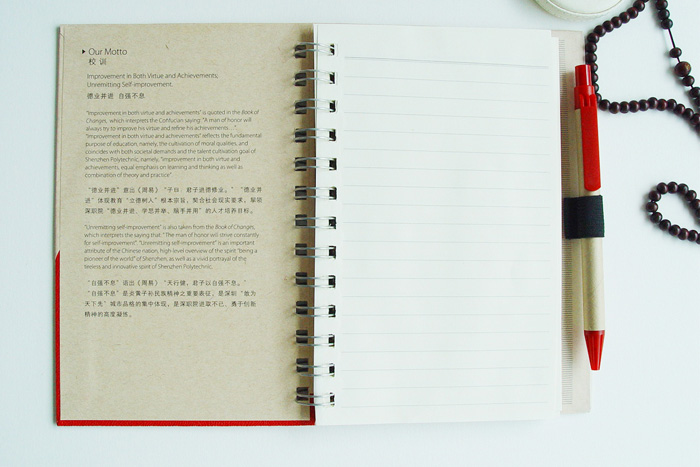 Our Motto
校 训
Improvement in Both Virtue and Achievements;
Unremitting Self-improvement.
德业并进 自强不息
"Improvement in both virtue and achievements" is quoted in the Book of
Changes, which interprets the Confucian saying: "A man of honor will
always try to improve his virtue and refine his achievements. . .".
"Improvement in both virtue and achievements" reflects the fundamental
purpose of education, namely, the cultivation of moral qualities, and
coincides with both societal demands and the talent cultivation goal of
Shenzhen Polytechnic, namely, "improvement in both virtue and
achievements, equal emphasis on learning and thinking as well as
combination of theory and practice".
"德业并进"语出《周易》"子曰：君子进德修业。" "德业并
进"体现教育"立德树人"根本宗旨，契合社会现实要求，凝铸
深职院"德业并进、学思并举、脑手并用"的人才培养目标。
"Unremitting self-improvement" is also taken from the Book of Changes,
which interprets the saying that " The man of honor will strive constantly
for self-improvement". "Unremitting self-improvement" is an important
attribute of the Chinese nation, high-level overview of the spirit "being a
pioneer of the world" of Shenzhen, as well as a vivid portrayal of the
tireless and innovative spirit of Shenzhen Polytechnic.
"自强不息"语出《周易》"天行健，君子以自强不息。"
"自强不息"是炎黄子孙民族精神之重要表征，是深圳"敢为
天下先"城市品格的集中体现，是深职院进取不已、勇于创新
精神的高度凝练。